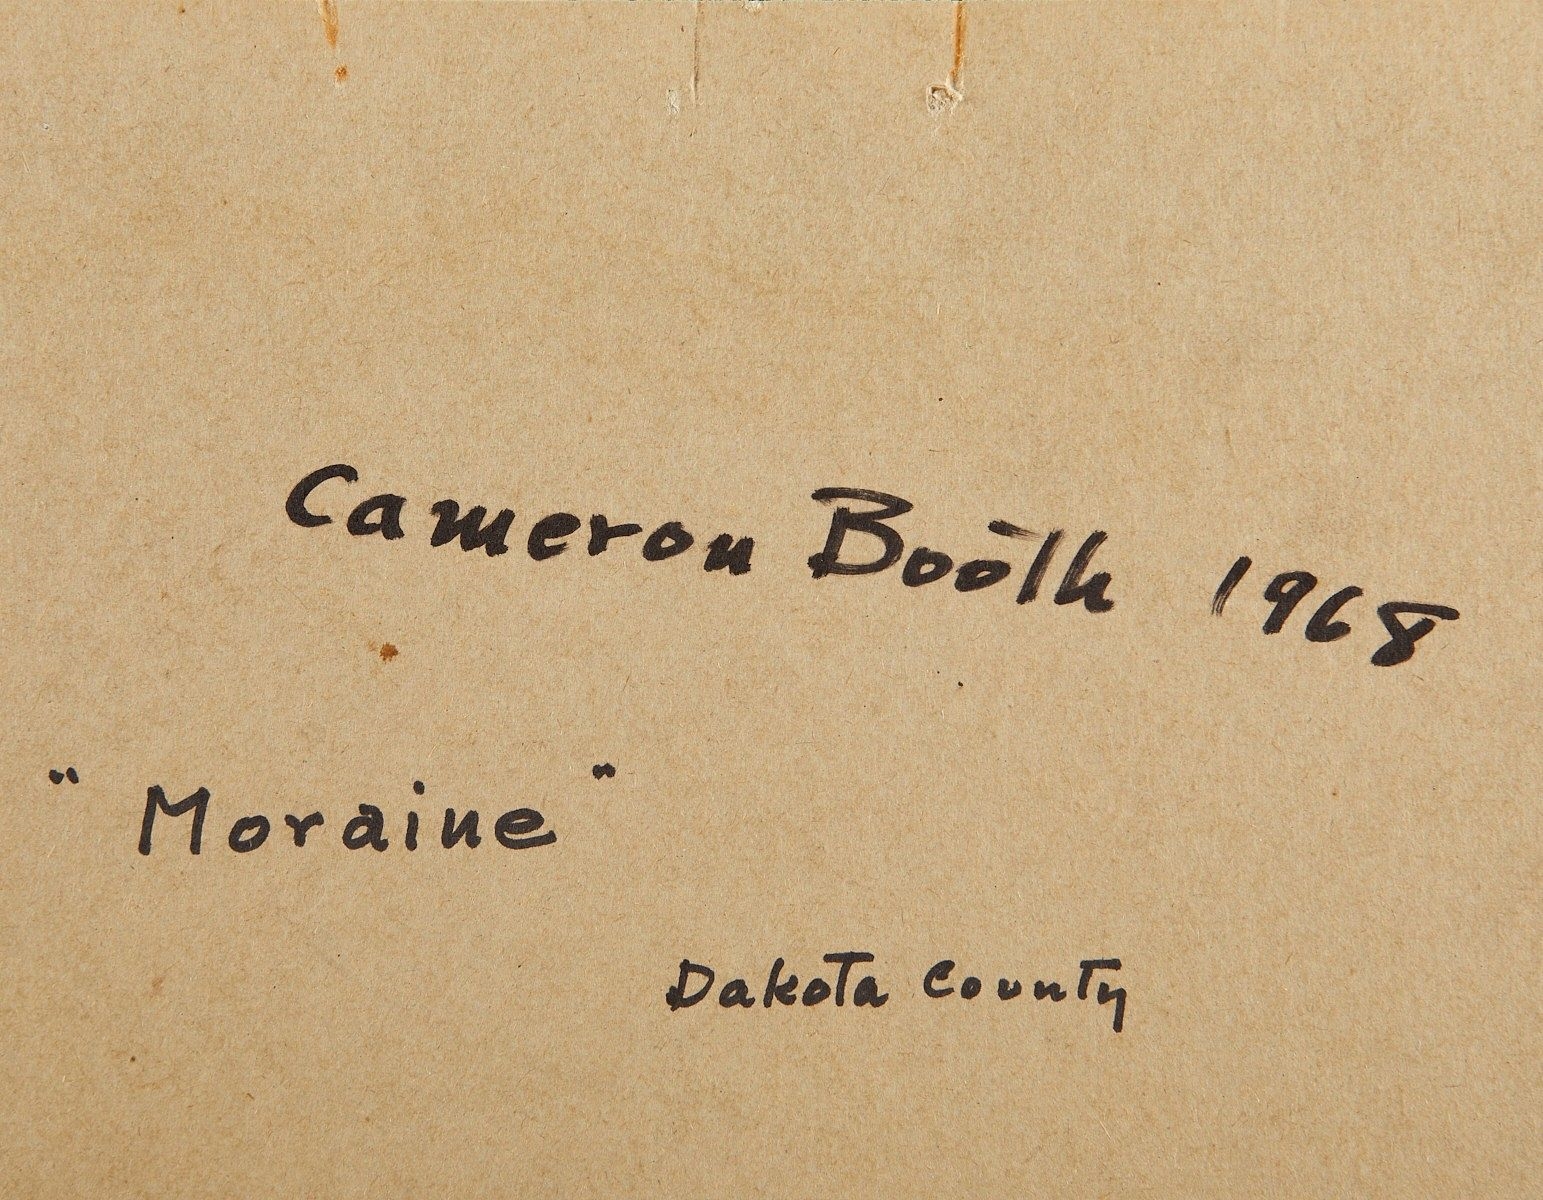 Cameron Booth 1968
"Moraine"
Dakota County